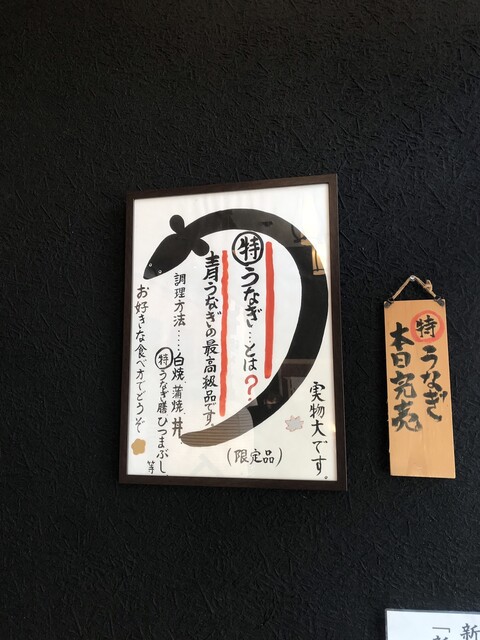 実物大です。
㊕うなぎ…とは?
(限定品)
青うなぎの最高級品です。
調理方法……白焼、蒲焼、丼、
㊕うなぎ膳ひつまぶし
等
お好きな食べ方でどうぞ
㊕うなぎ
本日完売
新
「